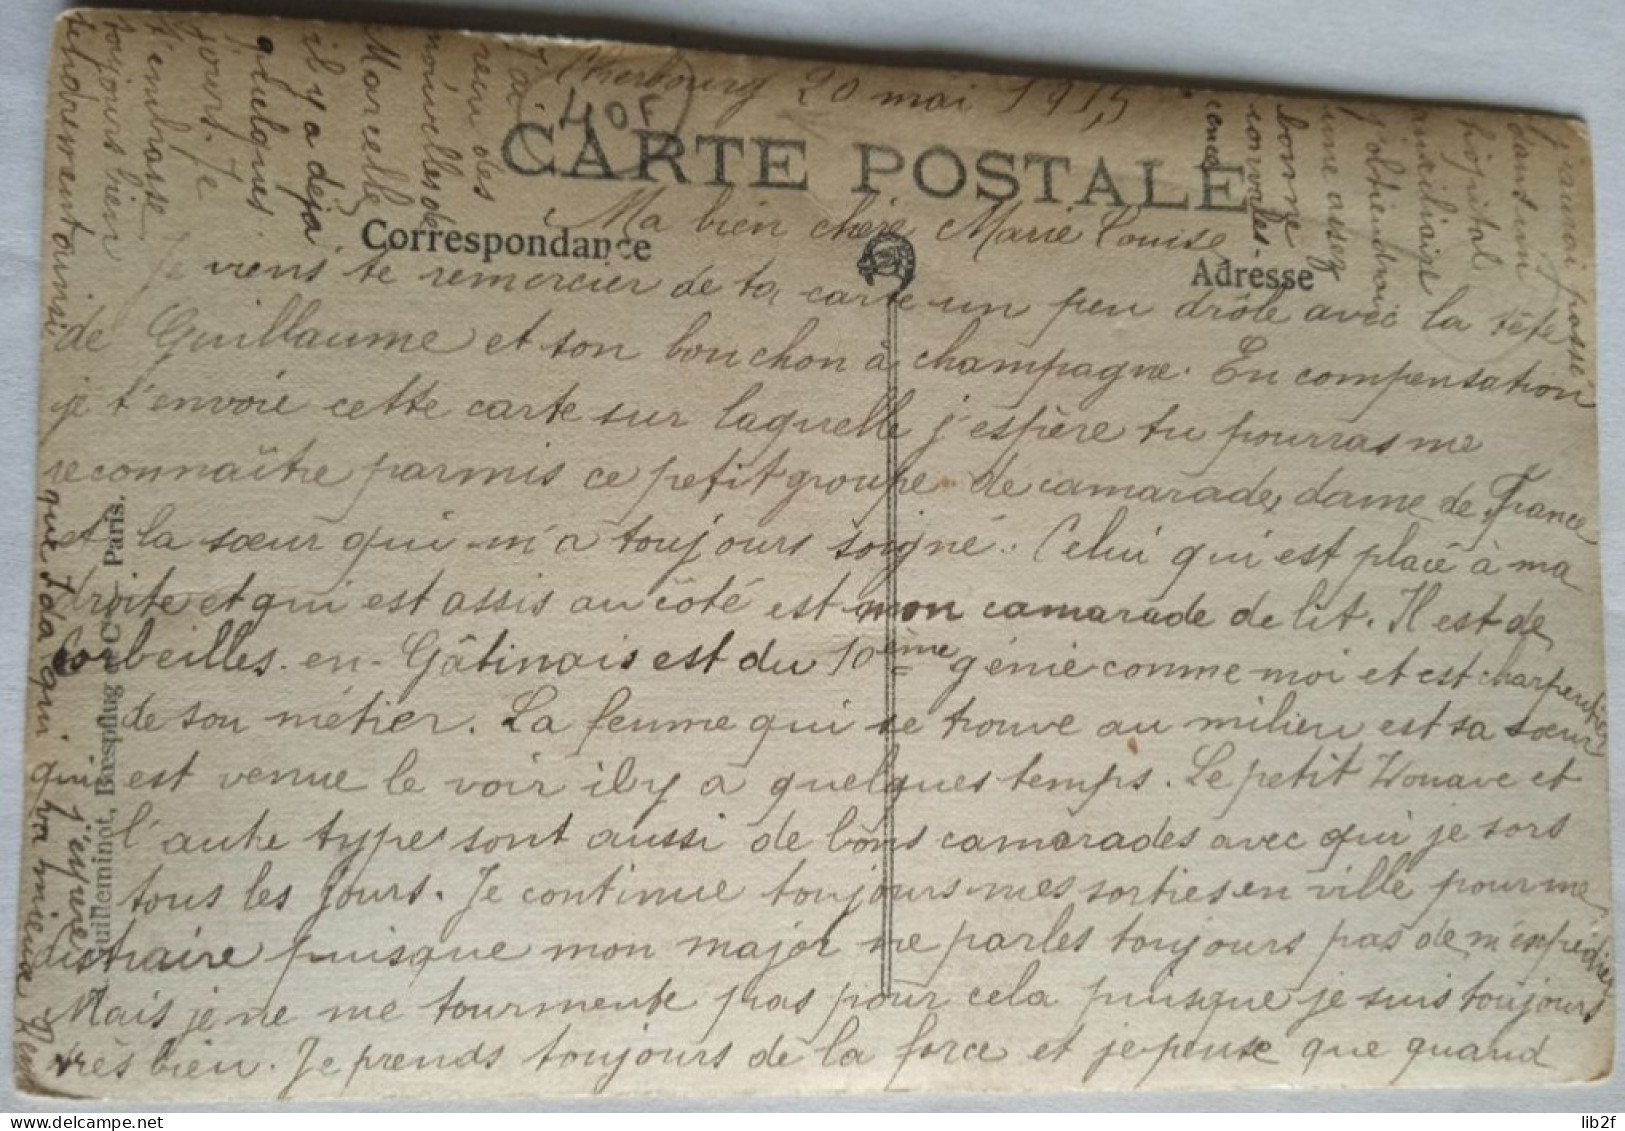 Cherbourg 20 mai 1915
40F
CARTE POSTALE
Ma bien chère Marie Louise
Correspondance
Adresse
viens te remercier de ta carte un peu drôle avec la tête
de Guillaume et son bouchon à champagne. En compensation
je t'envoie cette carte sur laquelle j'espère tu pourras me
reconnaître parmis ce petit groupe de camarade, dame de France
et la sœur qui m'a toujours soigné. Celui qui est placé à ma
droite et qui est assis au côté est mon camarade de lit. Il est de
Corbeilles-en-Gâtinais est du 10ème génie comme moi et est charpentier
de son métier. La femme qui se trouve au milieu est sa sœur
est venue le voir il y a quelques temps. Le petit Zouave et
l'autre type sont aussi de bons camarades avec qui je sors
tous les jours. Je continue toujours mes sorties en ville pour me
distraire puisque mon major ne parles toujours pas de m'expédier
Mais je ne me tourmente pas pour cela puisque je suis toujours
très bien. Je prends toujours de la force et je pense que quand
j'aurai passé
dans un
hôpital
auxiliaire
j'obtiendrai
une assez
bonne
convales-
cence
J'ai
reçu des
nouvelles de
Marcelle
il y a déjà
quelques
jours. Je
t'embrasse
toujours bien
tendrement ainsi
que Ida qui va mieux
qui j'espère
Guilleminot, Bœspflug et Cie Paris.